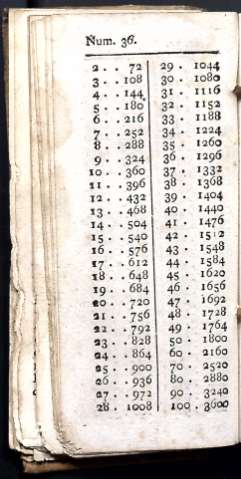 Num. 36.
2 . . 72
3 . . 108
4 . . 144
5 . . 180
6 . . 216
7 . . 252
8 . . 288
9 . . 324
10 . . 360
11 . . 396
12 . . 432
13 . . 468
14 . . 504
15 . . 540
16 . . 576
17 . . 612
18 . . 648
19 . . 684
20 . . 720
21 . . 756
22 . . 792
23 . . 828
24 . . 864
25 . . 900
26 . . 936
27 . . 972
28 . 1008
29 . 1044
30 . 1080
31 . 1116
32 . 1152
33 . 1188
34 . 1224
35 . 1260
36 . 1296
37 . 1332
38 . 1368
39 . 1404
40 . 1440
41 . 1476
42 . 1512
43 . 1548
44 . 1584
45 . 1620
46 . 1656
47 . 1692
48 . 1728
49 . 1764
50 . 1800
60 . 2160
70 . 2520
80 . 2880
90 . 3240
100 . 3600